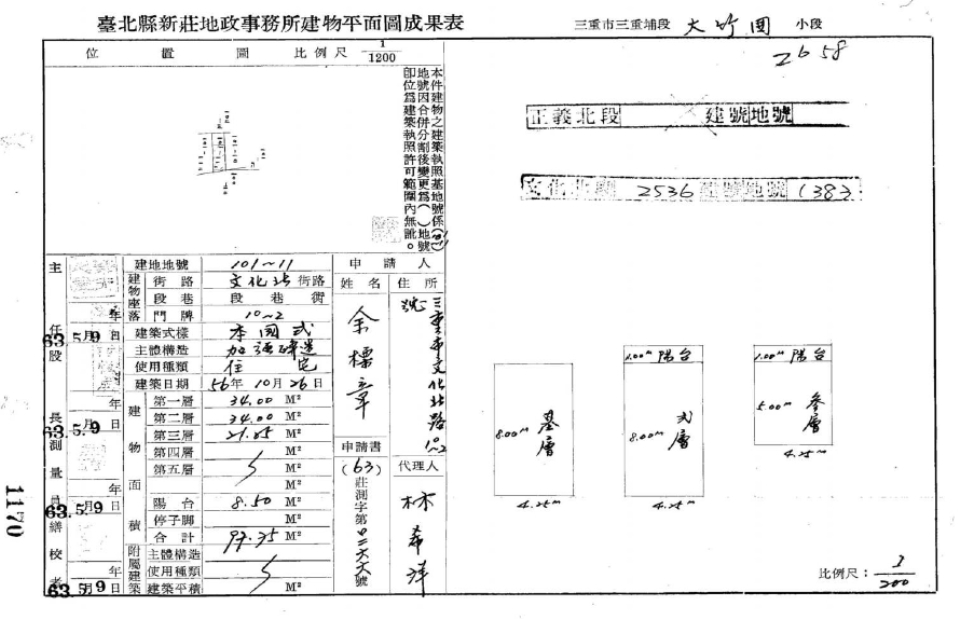 臺北縣新莊地政事務所建物平面圖成果表
三重市三重埔段 大竹圍 小段
2658
位置圖 比例尺 1/1200
本件建物之建築執照基地號係( )
地號因合併分割後變更為( )地號
卽位為建築執照許可範圍內無訛。
正義北段 建號地號
文化北 2536 建號地號 1383
主任股長
測量員
繕校者
63.5月9日
63.5月9日
63.5月9日
63.5月9日
建地地號 101~11
建物座落
街路 文化北 街路
段巷 段巷衖
門牌 10~2
建築式樣 本國式
主體構造 加強磚造
使用種類 住宅
建築日期 56年10月26日
建物面積
第一層 34.00 M²
第二層 34.00 M²
第三層 21.25 M²
第四層 M²
第五層 M²
M²
陽台 8.50 M²
停子脚 M²
合計 97.75 M²
附屬建築
主體構造
使用種類
建築平積 M²
申請人
姓名 住所
余標章
三重市文化北路10~2號
申請書 代理人
(63)莊測字第 號
林
基層
8.00m
4.25m
1.00m 陽台
弍層
8.00m
4.25m
1.00m 陽台
叁層
5.00m
4.25m
比例尺：1/200
1170